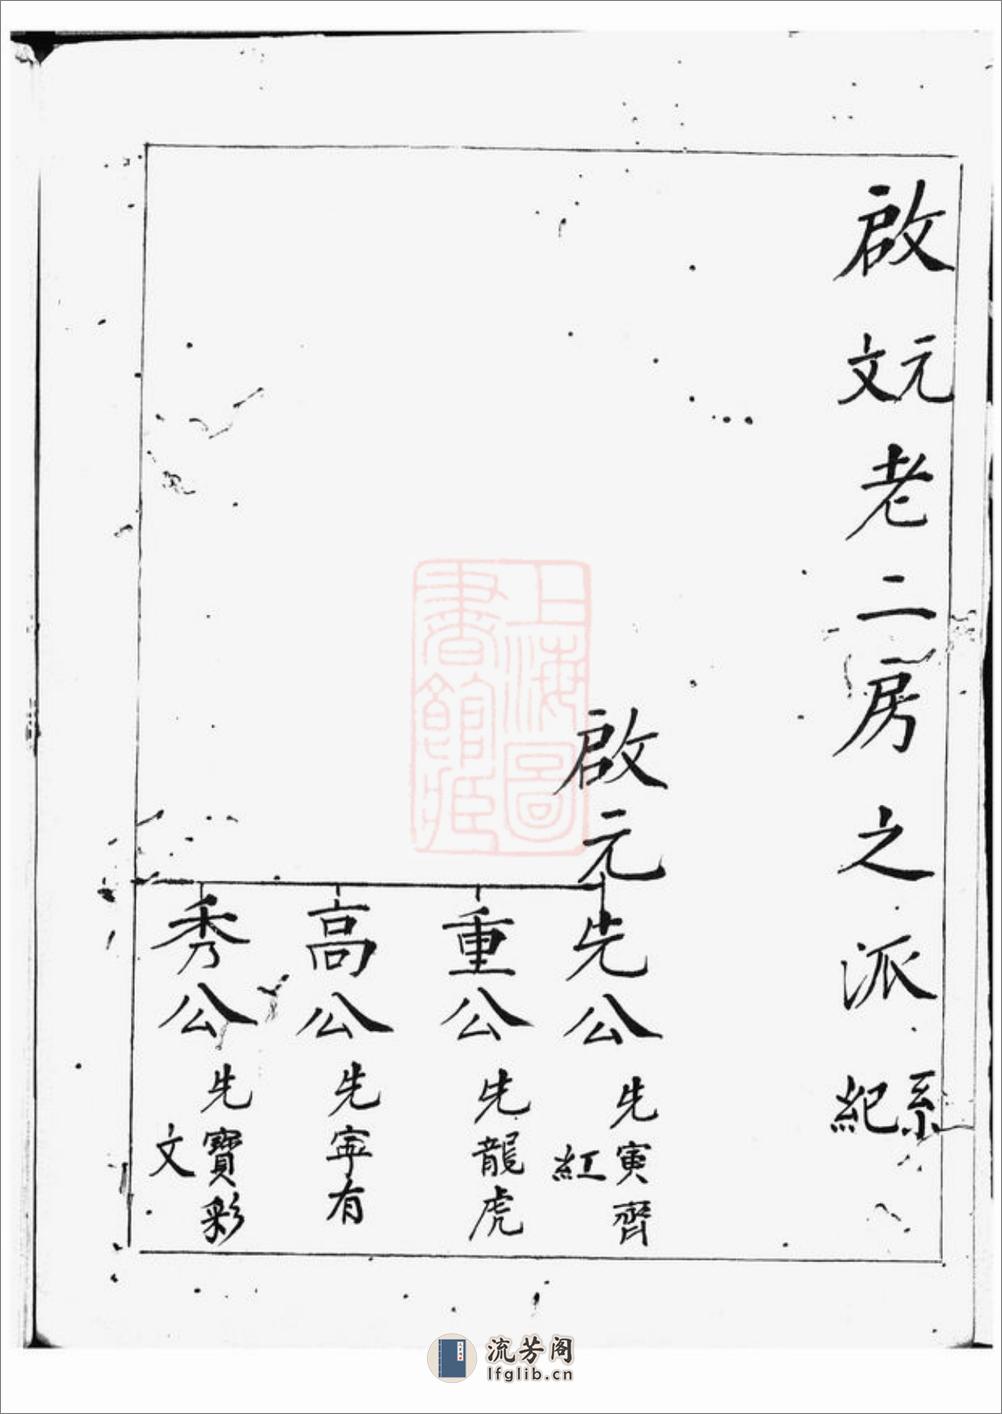 啟元文老二房之派系紀
啟元
先公 先寅齊紅
重公 先龍虎
高公 先寧有
秀公 先寶彩文
上海圖書館藏
流芳阁
lfglib.cn